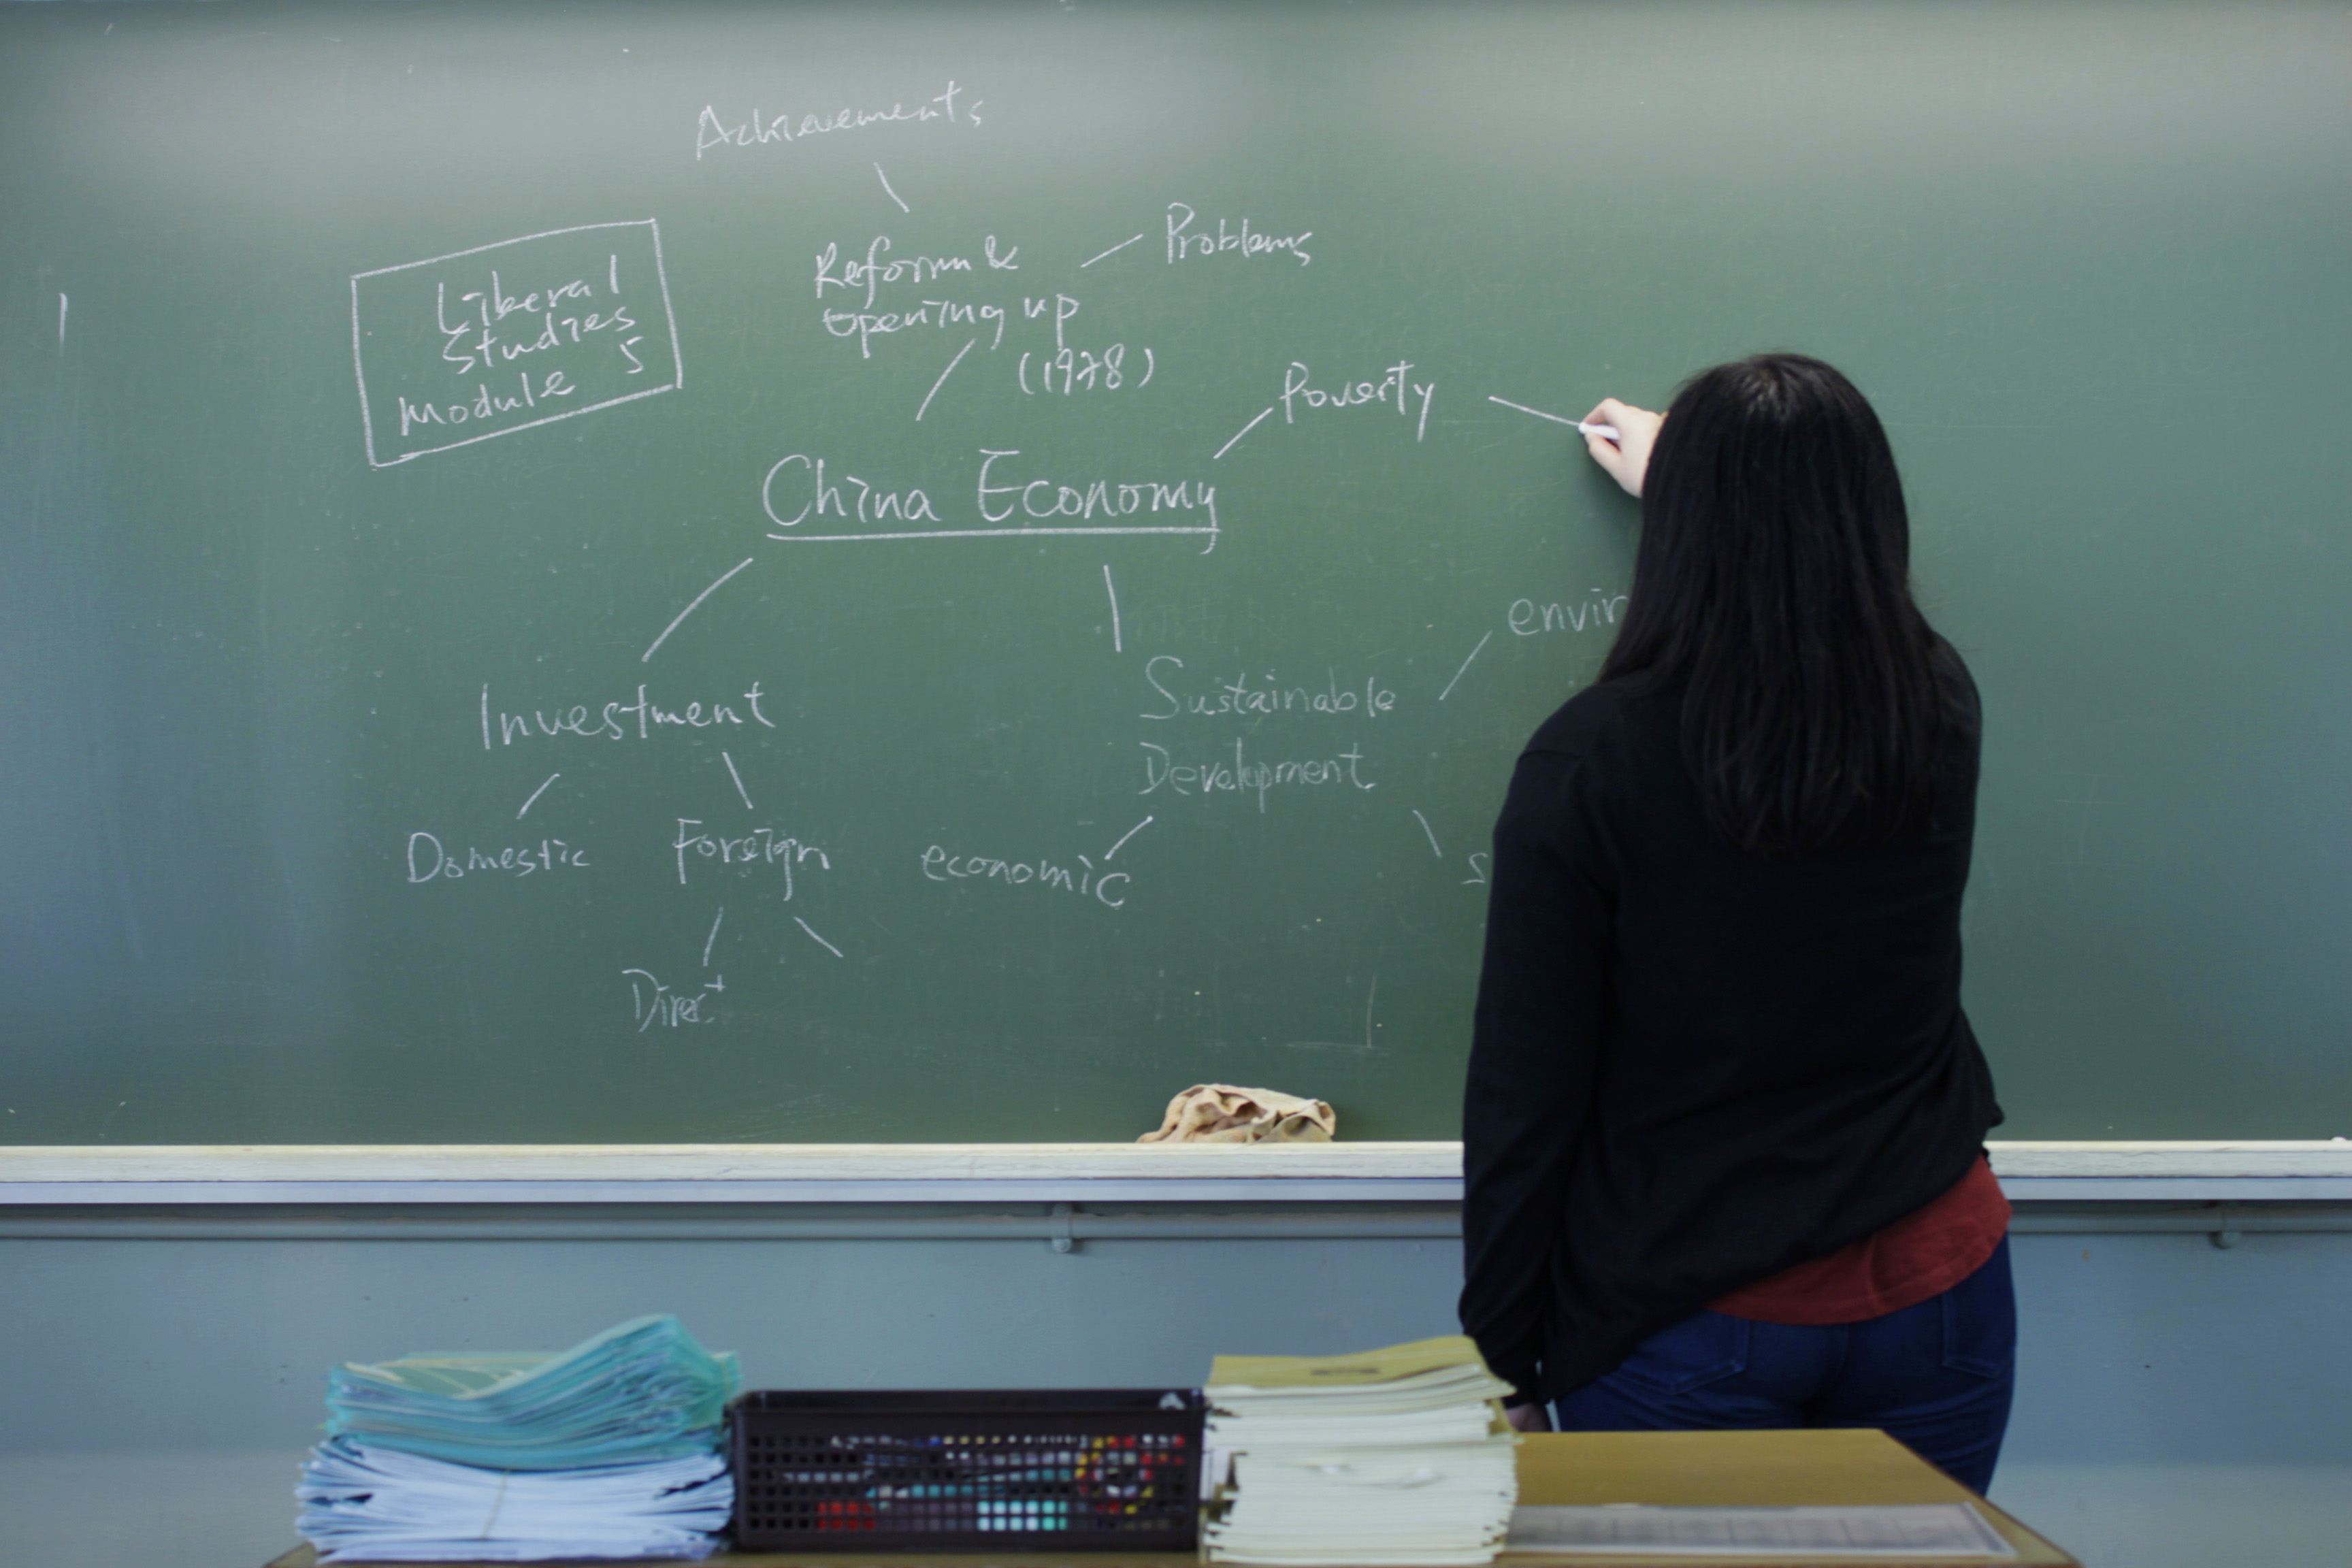 Achievements
Reform &
Opening up
(1978)
Problems
Liberal
Studies
Module 5
Poverty
China Economy
envir
Investment
Sustainable
Development
Domestic
Foreign
economic
s
Direct